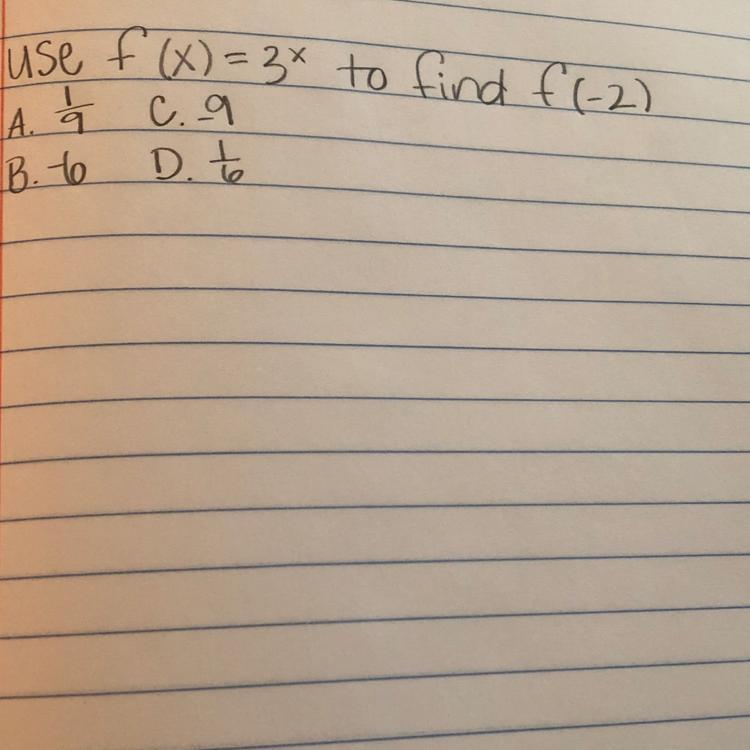 use f(x) = 3ˣ to find f(-2)
A. 1/9 C. -9
B. -6 D. 1/6